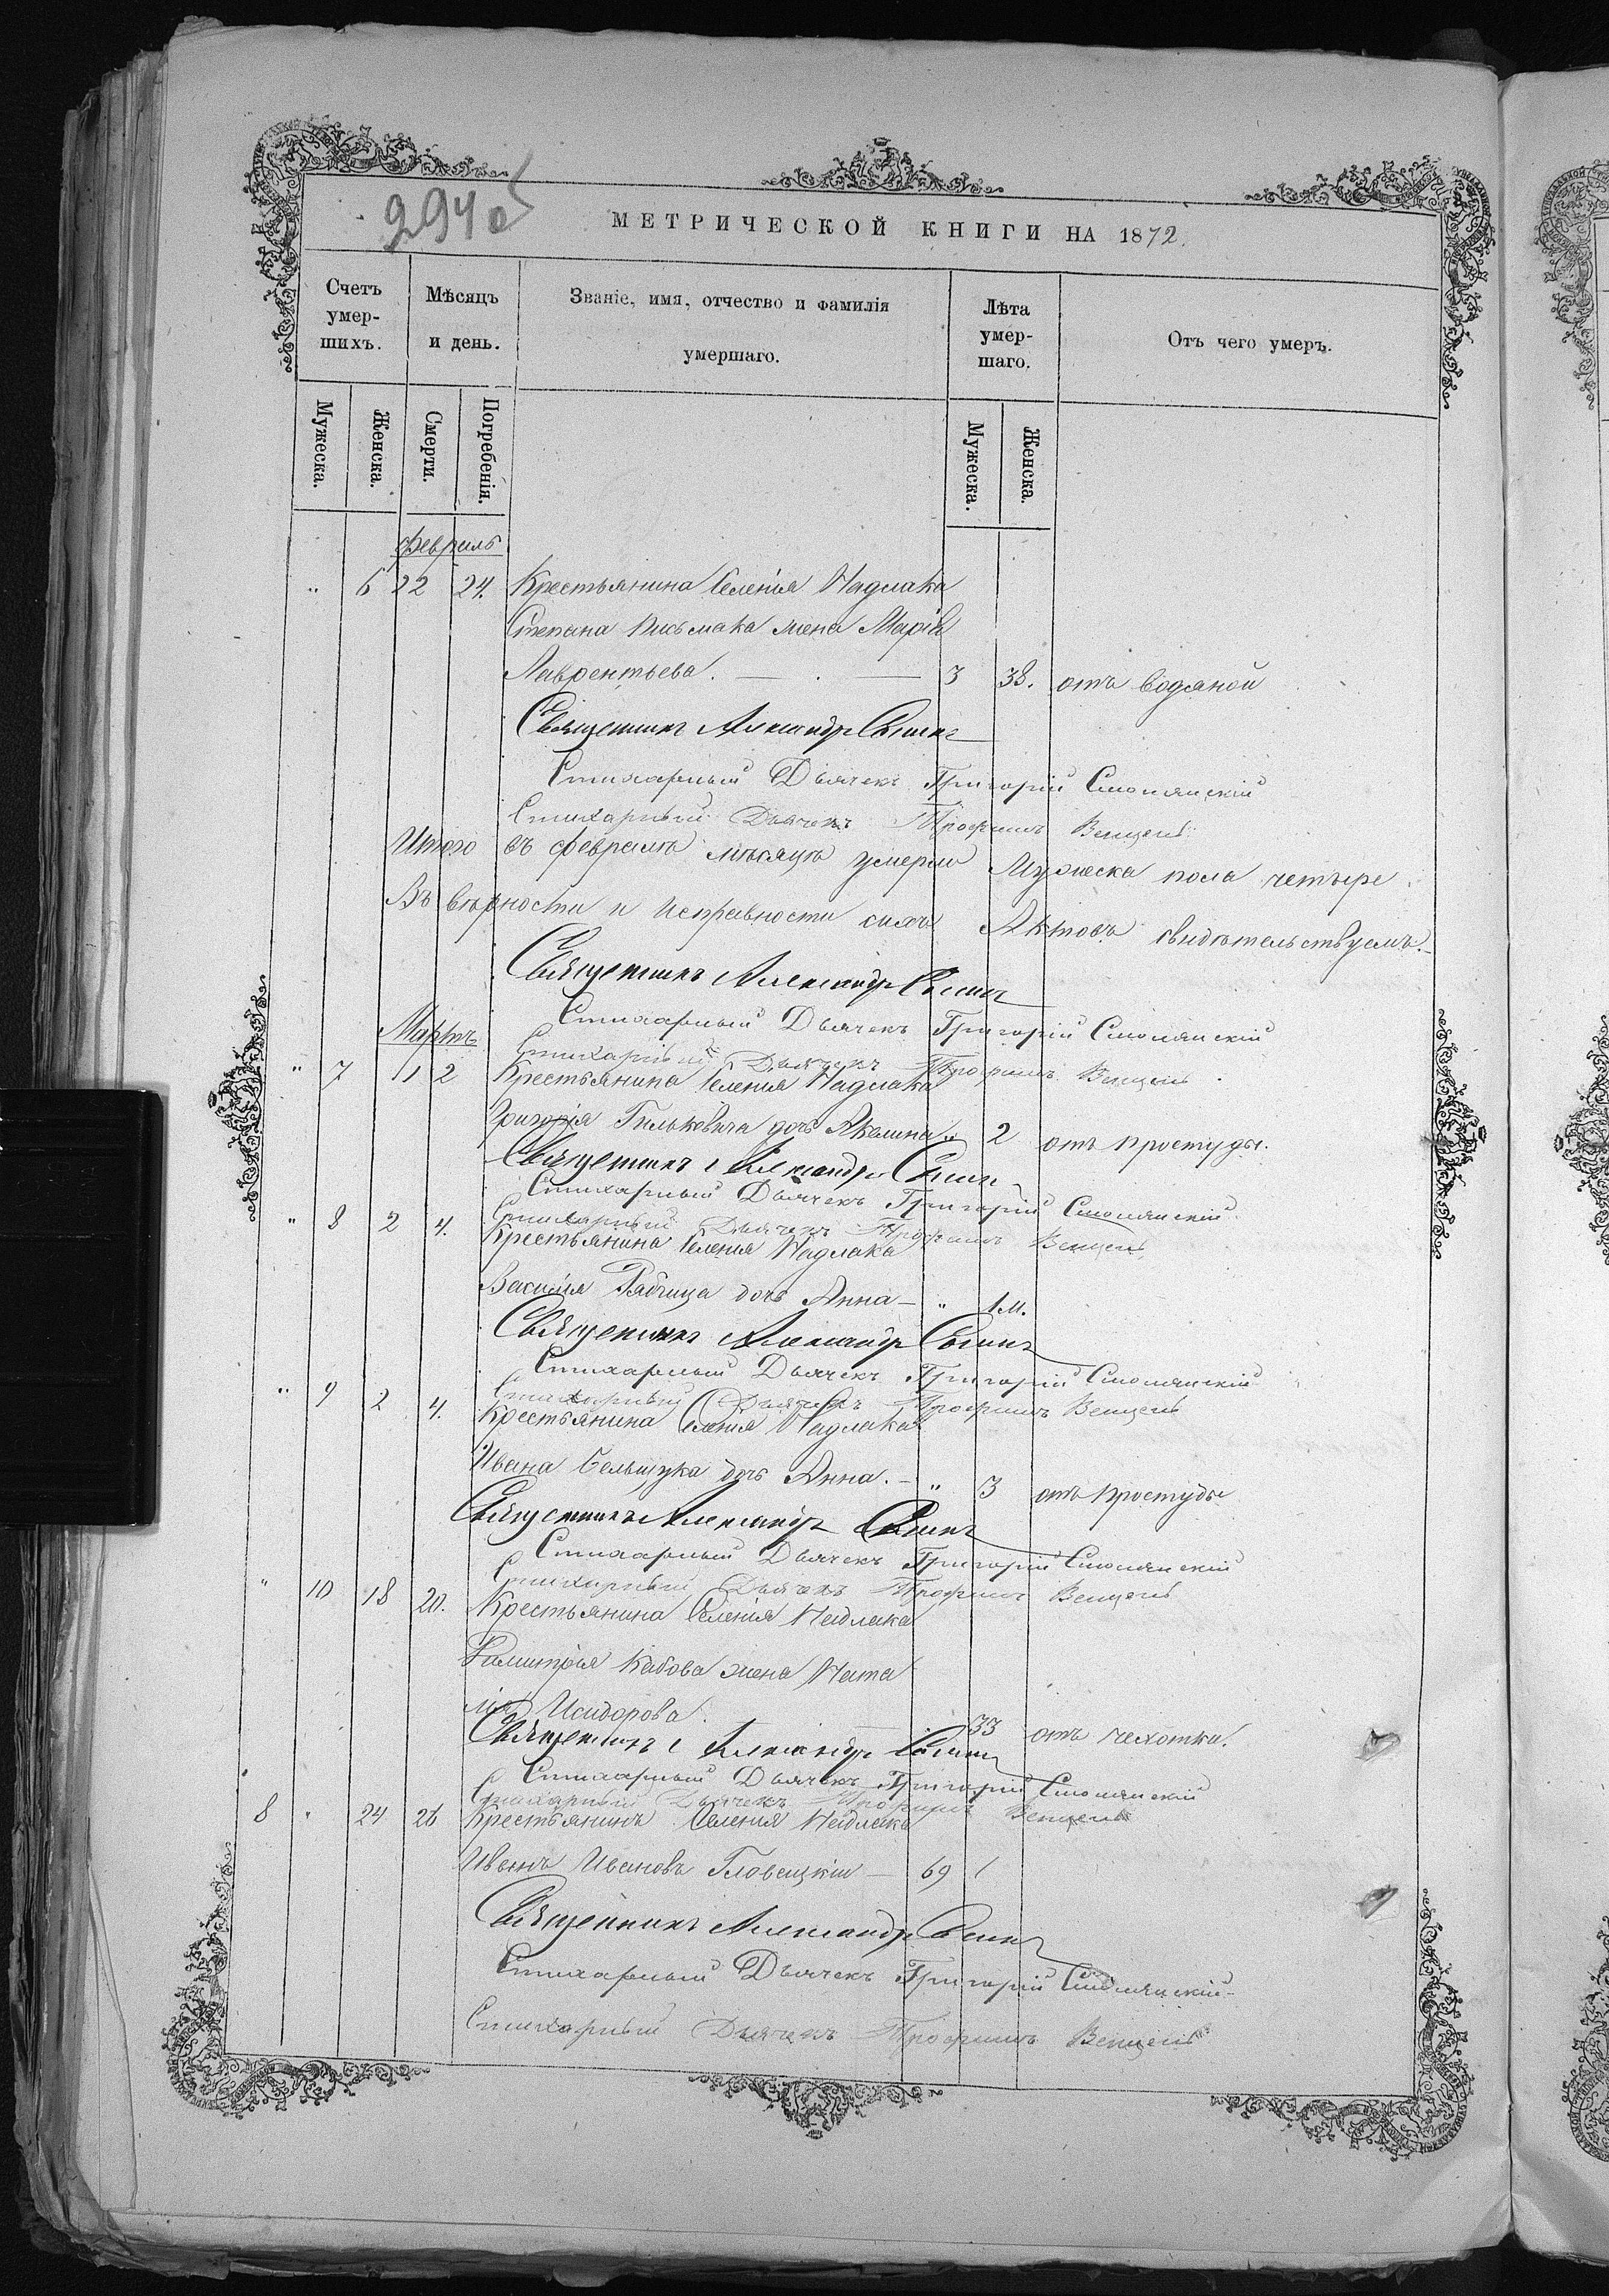 294об
МЕТРИЧЕСКОЙ КНИГИ НА 1872.
Счетъ умер-шихъ.
Мѣсяцъ и день.
Званіе, имя, отчество и фамилія умершаго.
Лѣта умер-шаго.
Отъ чего умеръ.
Мужеска. Женска. Смерти. Погребенія. Мужеска. Женска.
Февраль
" 6 22 24. Крестьянина Селенія Надлака
Степана Письмака жена Марія
Лаврентьева. — . — 38. отъ водяной
Священникъ Александръ
Стихарный Дьячекъ Григорій Смолянскій
Стихарный Дьячекъ Трофимъ Венцель
Итого въ февралѣ мѣсяцѣ умерло Мужеска пола четыре
Въ вѣрности и исправности сихъ Актовъ свидѣтельствуемъ.
Священникъ Александръ
Стихарный Дьячекъ Григорій Смолянскій
Мартъ
Стихарный Дьячекъ Трофимъ Венцель
" 7 1 2 Крестьянина Селенія Надлака
Григорія Гильковича дочь Акилина " 2 отъ простуды.
Священникъ Александръ
Стихарный Дьячекъ Григорій Смолянскій
Стихарный Дьячекъ Трофимъ Венцель
" 8 2 4. Крестьянина Селенія Надлака
Василія Рябчица дочь Анна — " 1 м.
Священникъ Александръ
Стихарный Дьячекъ Григорій Смолянскій
Стихарный Дьячекъ Трофимъ Венцель
" 9 2 4. Крестьянина Селенія Надлака
Ивана дочь Анна. — " 3 отъ простуды
Священникъ Александръ
Стихарный Дьячекъ Григорій Смолянскій
Стихарный Дьячекъ Трофимъ Венцель
" 10 18 20. Крестьянина Селенія Надлака
Димитрія Кабова жена Ната
лія Исидорова. 33 отъ чехотки.
Священникъ Александръ
Стихарный Дьячекъ Григорій Смолянскій
Стихарный Дьячекъ Трофимъ Венцель
8 " 24 26 Крестьянинъ Селенія Надлака
Иванъ Ивановъ Гловацкій — 69
Священникъ Александръ
Стихарный Дьячекъ Григорій Смолянскій
Стихарный Дьячекъ Трофимъ Венцель